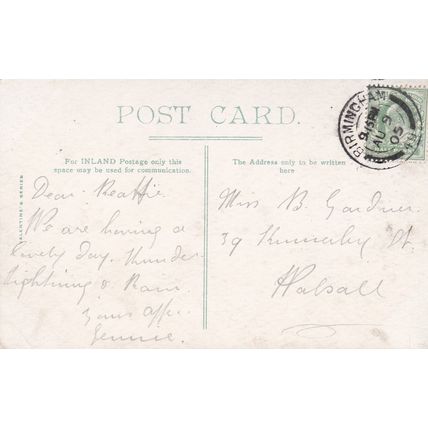 POST CARD.
For INLAND Postage only this
space may be used for communication.
The Address only to be written
here
VALENTINE'S SERIES
BIRMINGHAM
9 15 PM
AU 9
05
Dear Beattie.
We are having a
lovely day. Thunder
lightning & Rain.
Yours affec.
Jennie.
Miss B. Gardner.
39 St.
Walsall